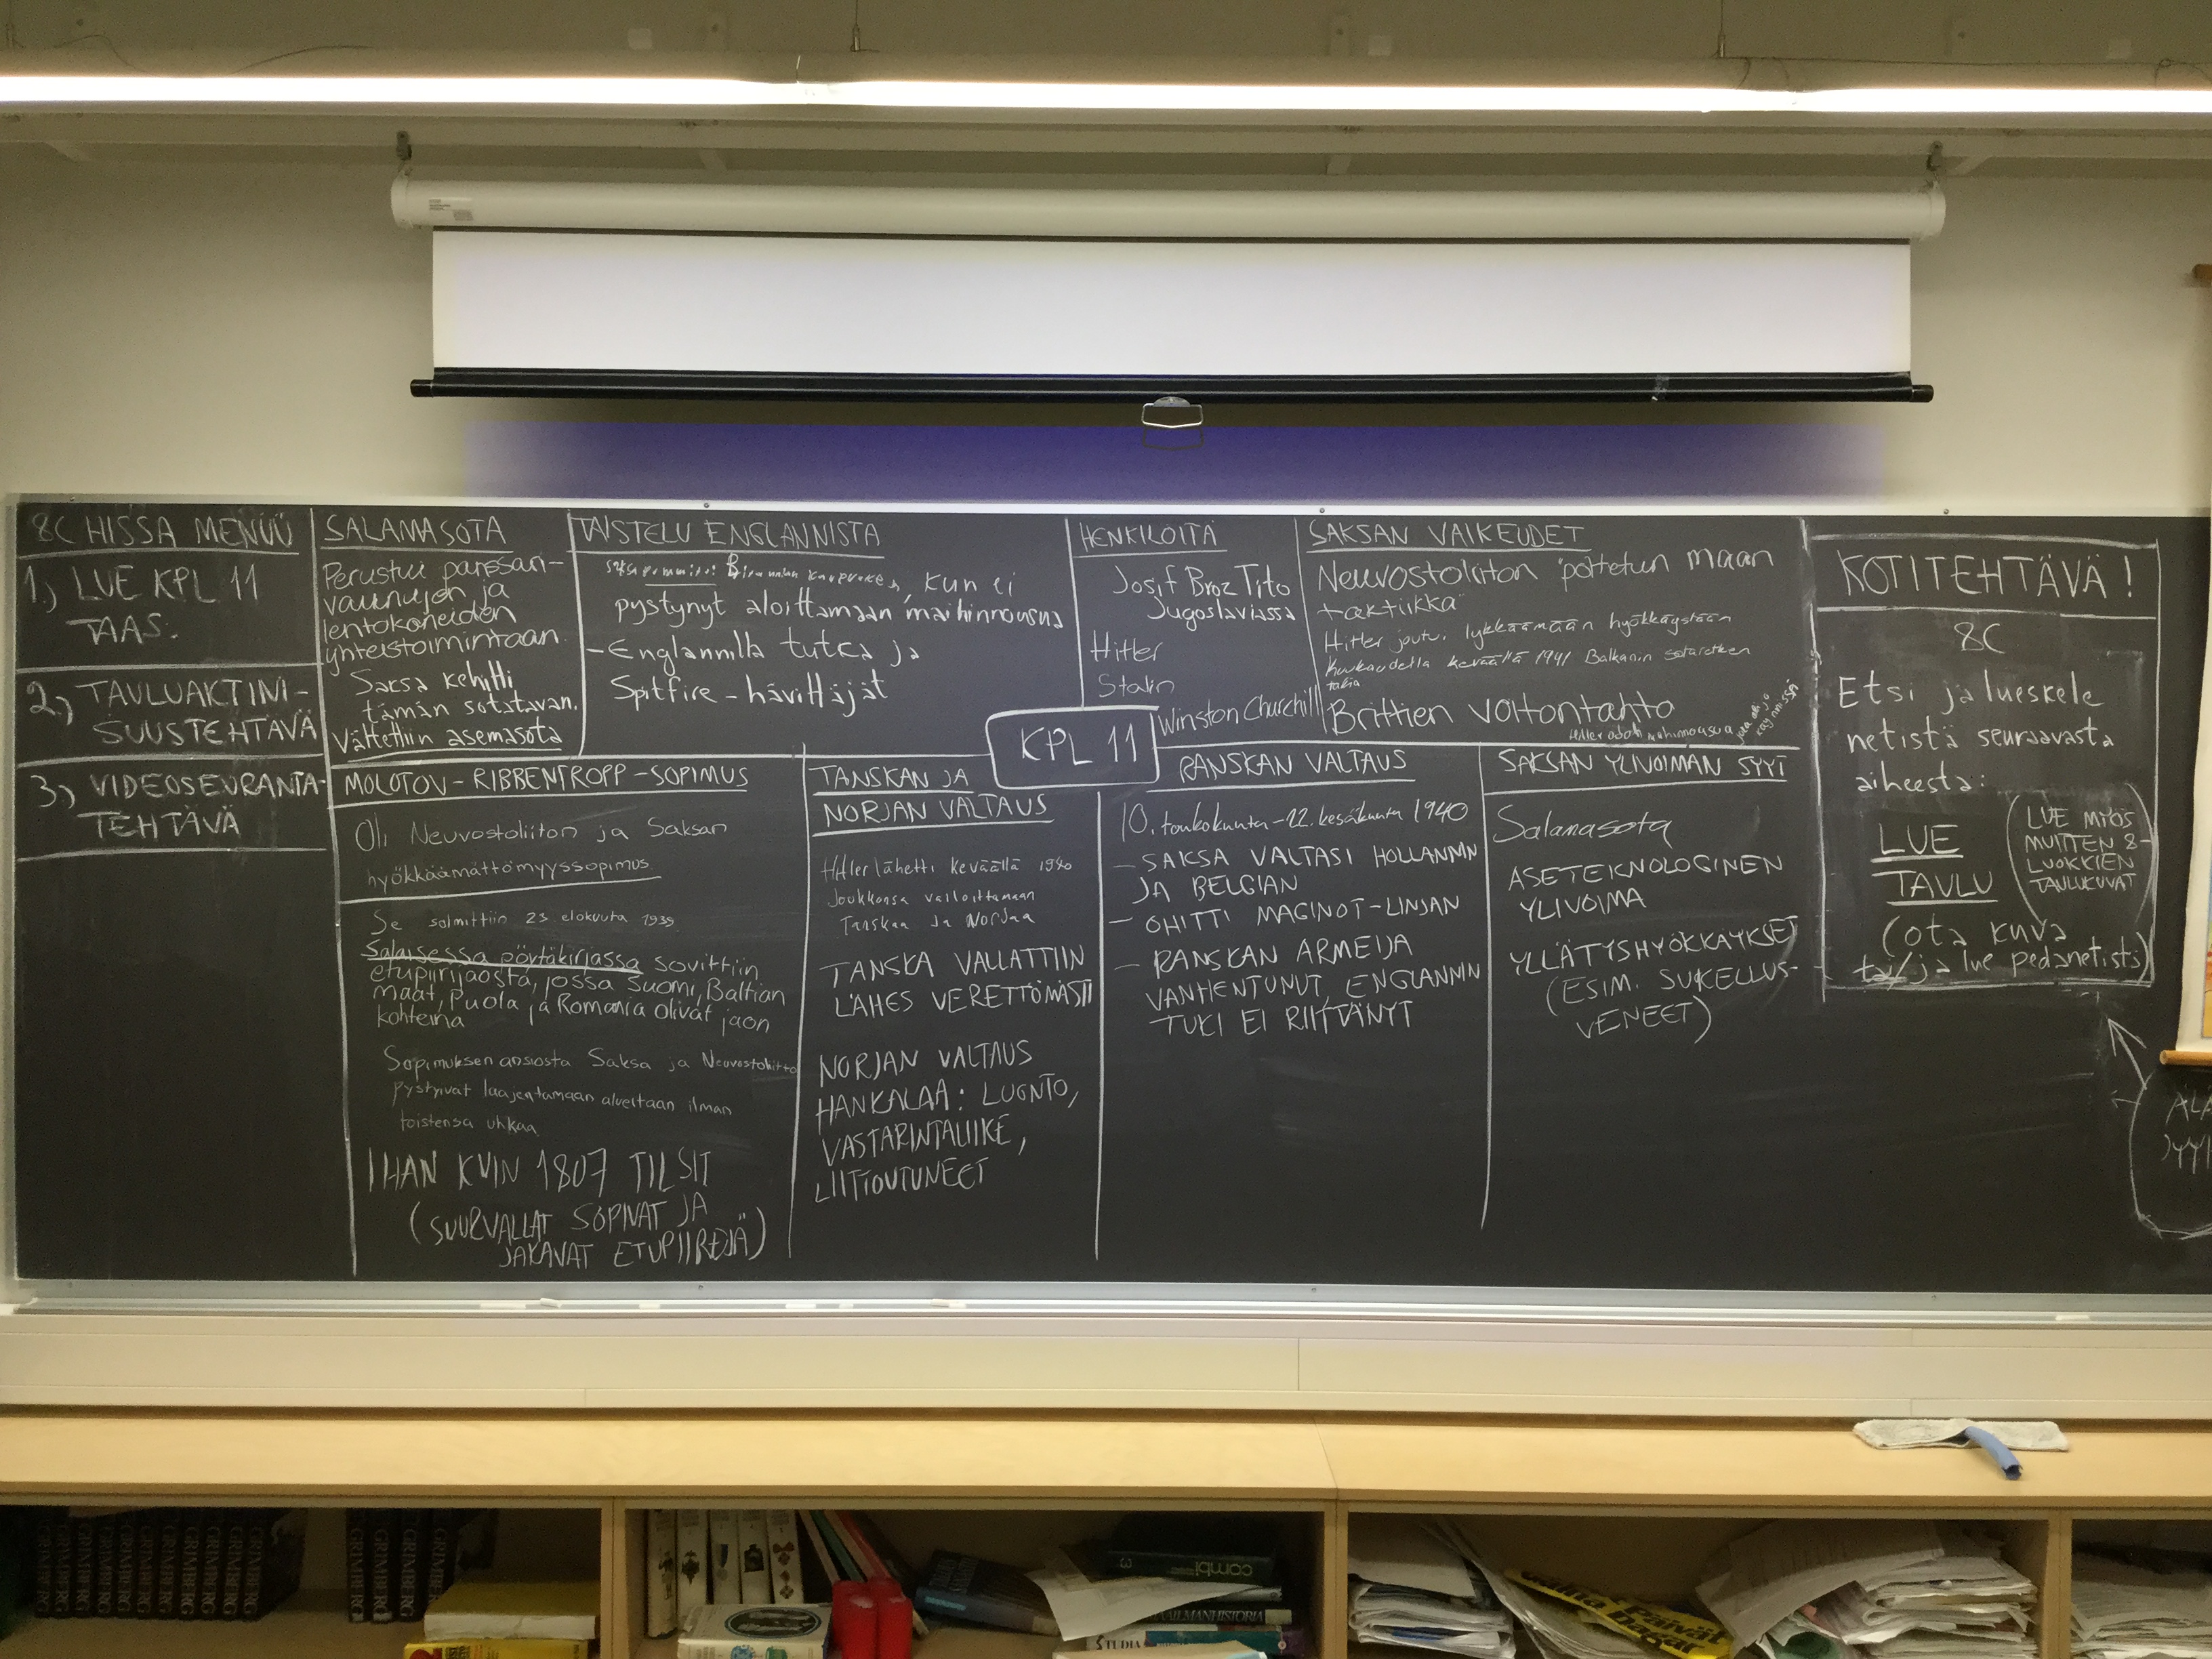 8C HISSA MENUU
1.) LUE KPL 11
TAAS.
2.) TAULUAKTIVI-
SUUSTEHTÄVÄ
3.) VIDEOSEURANTA-
TEHTÄVÄ
SALAMASOTA
Perustui panssari-
vaunujen ja
lentokoneiden
yhteistoimintaan.
Saksa kehitti
tämän sotatavan.
Vältettiin asemasota
TAISTELU ENGLANNISTA
kun ei
pystynyt aloittamaan maihinnousua
- Englannilla tutka ja
Spitfire - hävittäjät
HENKILÖITÄ
Josif Broz Tito
Jugoslaviassa
Hitler
Stalin
Winston Churchill
SAKSAN VAIKEUDET
Neuvostoliiton "poltetun maan
taktiikka"
Hitler joutui lykkäämään hyökkäystään
kuukaudella keväällä 1941 Balkanin sotaretken
takia
Brittien voitontahto
KPL 11
MOLOTOV-RIBBENTROPP-SOPIMUS
Oli Neuvostoliiton ja Saksan
hyökkäämättömyyssopimus.
Se solmittiin 23 elokuuta 1939
Salaisessa pöytäkirjassa sovittiin
etupiirijaosta, jossa Suomi, Baltian
maat, Puola ja Romania olivat jaon
kohteina
Sopimuksen ansiosta Saksa ja Neuvostoliitto
pystyivat laajentamaan alueitaan ilman
toistensa uhkaa
IHAN KUIN 1807 TILSIT
(SUURVALLAT SOPIVAT JA
JAKAVAT ETUPIIREJÄ)
TANSKAN JA
NORJAN VALTAUS
Hitler lähetti keväällä 1940
Joukkonsa valloittamaan
Tanskaa ja Norjaa
TANSKA VALLATTIIN
LÄHES VERETTÖMÄSTI
NORJAN VALTAUS
HANKALAA: LUONTO,
VASTARINTALIIKE,
LIITTOUTUNEET
RANSKAN VALTAUS
10. toukokuuta - 22. kesäkuuta 1940
- SAKSA VALTASI HOLLANNIN
JA BELGIAN
- OHITTI MAGINOT-LINJAN
- RANSKAN ARMEIJA
VANHENTUNUT, ENGLANNIN
TUKI EI RIITTÄNYT
SAKSAN YLIVOIMAN SYYT
Salamasota
ASETEKNOLOGINEN
YLIVOIMA
YLLÄTYSHYÖKKÄYKSET
(ESIM. SUKELLUS-
VENEET)
KOTITEHTÄVÄ!
8C
Etsi ja lueskele
netistä seuraavasta
aiheesta:
LUE
TAULU
(LUE MYÖS
MUITTEN 8-
LUOKKIEN
TAULUKUVAT)
(ota kuva
tai/ja lue pedanetistä)
GRIMBERG
GRIMBERG
GRIMBERG
GRIMBERG
GRIMBERG
GRIMBERG
GRIMBERG
GRIMBERG
GRIMBERG
GRIMBERG
GRIMBERG
combi
3
STUDIA
Päivät